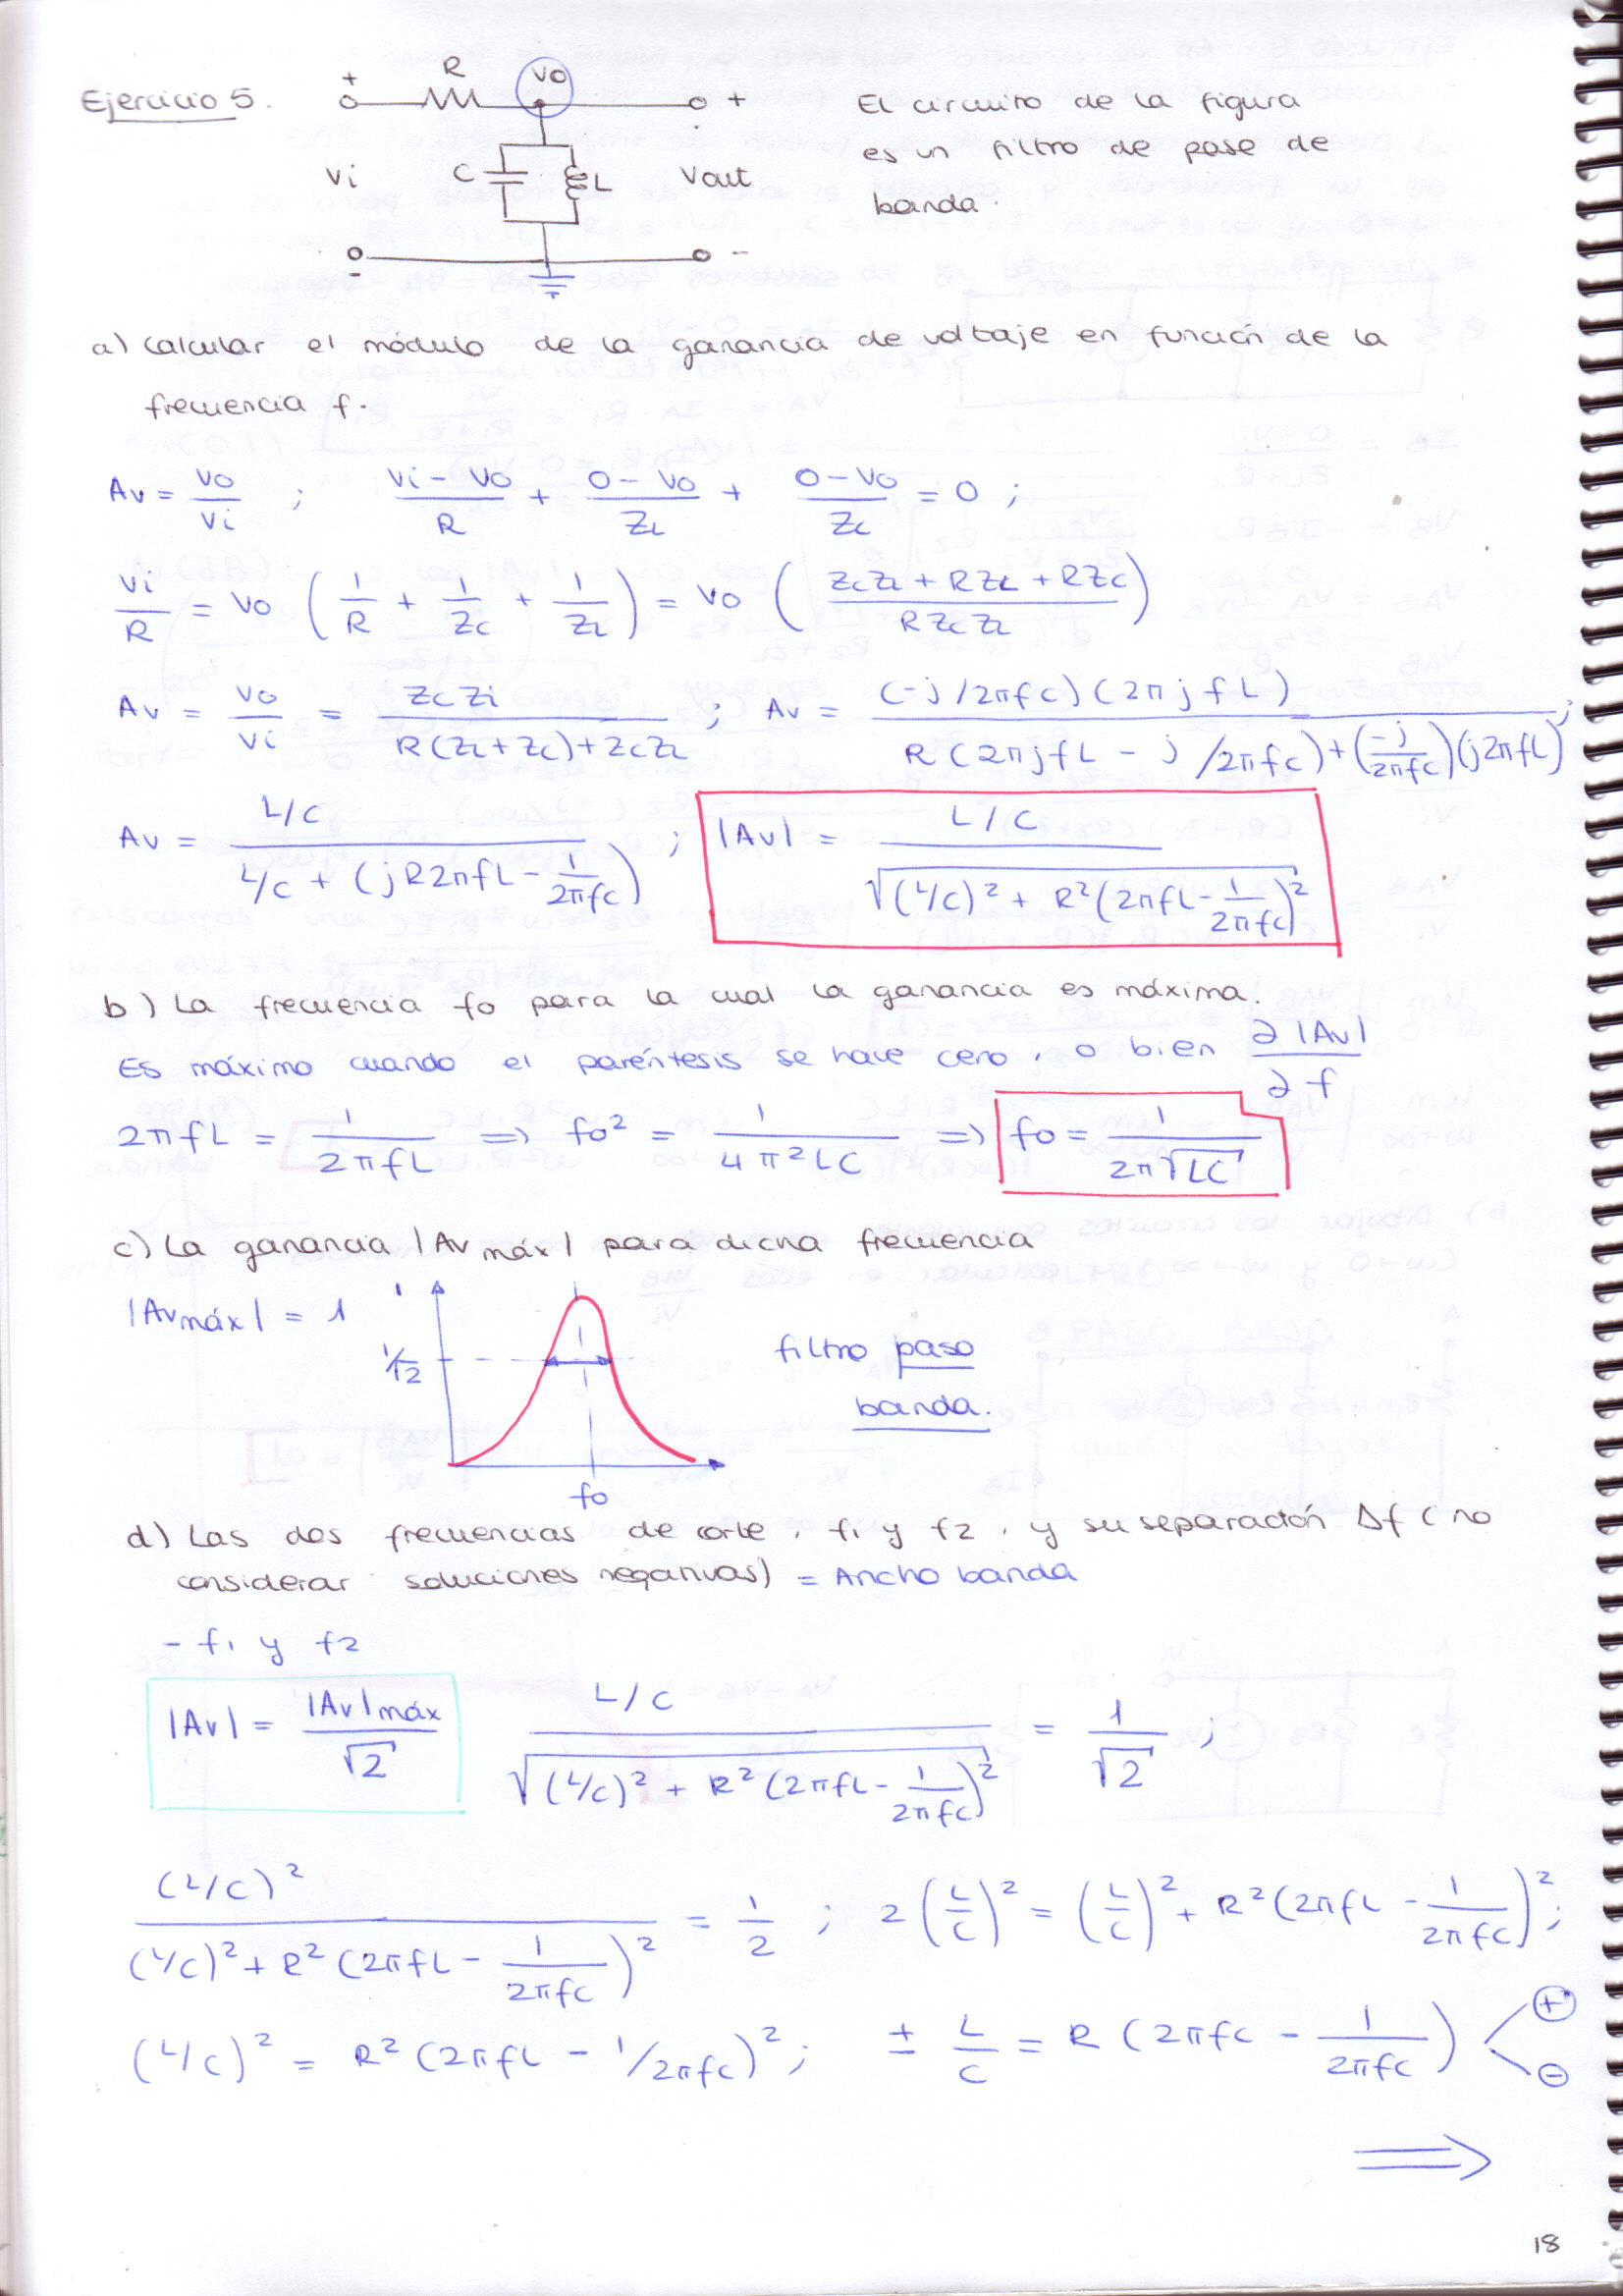 Ejercicio 5.
+ R Vo +
Vi C L Vout
- -
El circuito de la figura
es un filtro de pase de
banda.
a) Calcular el módulo de la ganancia de voltaje en función de la
frecuencia f.
Av = Vo/Vi ; (Vi - Vo)/R + (0 - Vo)/ZL + (0 - Vo)/Zc = 0 ;
Vi/R = Vo (1/R + 1/Zc + 1/ZL) = Vo ((ZcZL + RZL + RZc)/(R Zc ZL))
Av = Vo/Vi = (Zc Zi)/(R(ZL + Zc) + ZcZL) ; Av = ((-j/2πfc)(2πjfL))/(R(2πjfL - j/2πfc) + (-j/2πfc)(j2πfL)) ;
Av = (L/C)/(L/C + (jR2πfL - 1/2πfc)) ; |Av| = (L/C)/√((L/C)² + R²(2πfL - 1/2πfc)²)
b) La frecuencia fo para la cual la ganancia es máxima.
Es máximo cuando el paréntesis se hace cero, o bien ∂|Av|/∂f
2πfL = 1/2πfL ⇒ fo² = 1/4π²LC ⇒ fo = 1/2π√LC
c) La ganancia |Av máx| para dicha frecuencia
|Av máx| = 1
1
1/√2
fo
filtro paso
banda.
d) Las dos frecuencias de corte, f1 y f2, y su separación Δf (no
considerar soluciones negativas) = Ancho banda
- f1 y f2
|Av| = |Av|máx/√2 (L/C)/√((L/C)² + R²(2πfL - 1/2πfc)²) = 1/√2 ;
(L/C)²/((L/C)² + R²(2πfL - 1/2πfc)²) = 1/2 ; 2(L/C)² = (L/C)² + R²(2πfL - 1/2πfc)² ;
(L/C)² = R²(2πfL - 1/2πfc)² ; ± L/C = R(2πfc - 1/2πfc) + -
⇒
18